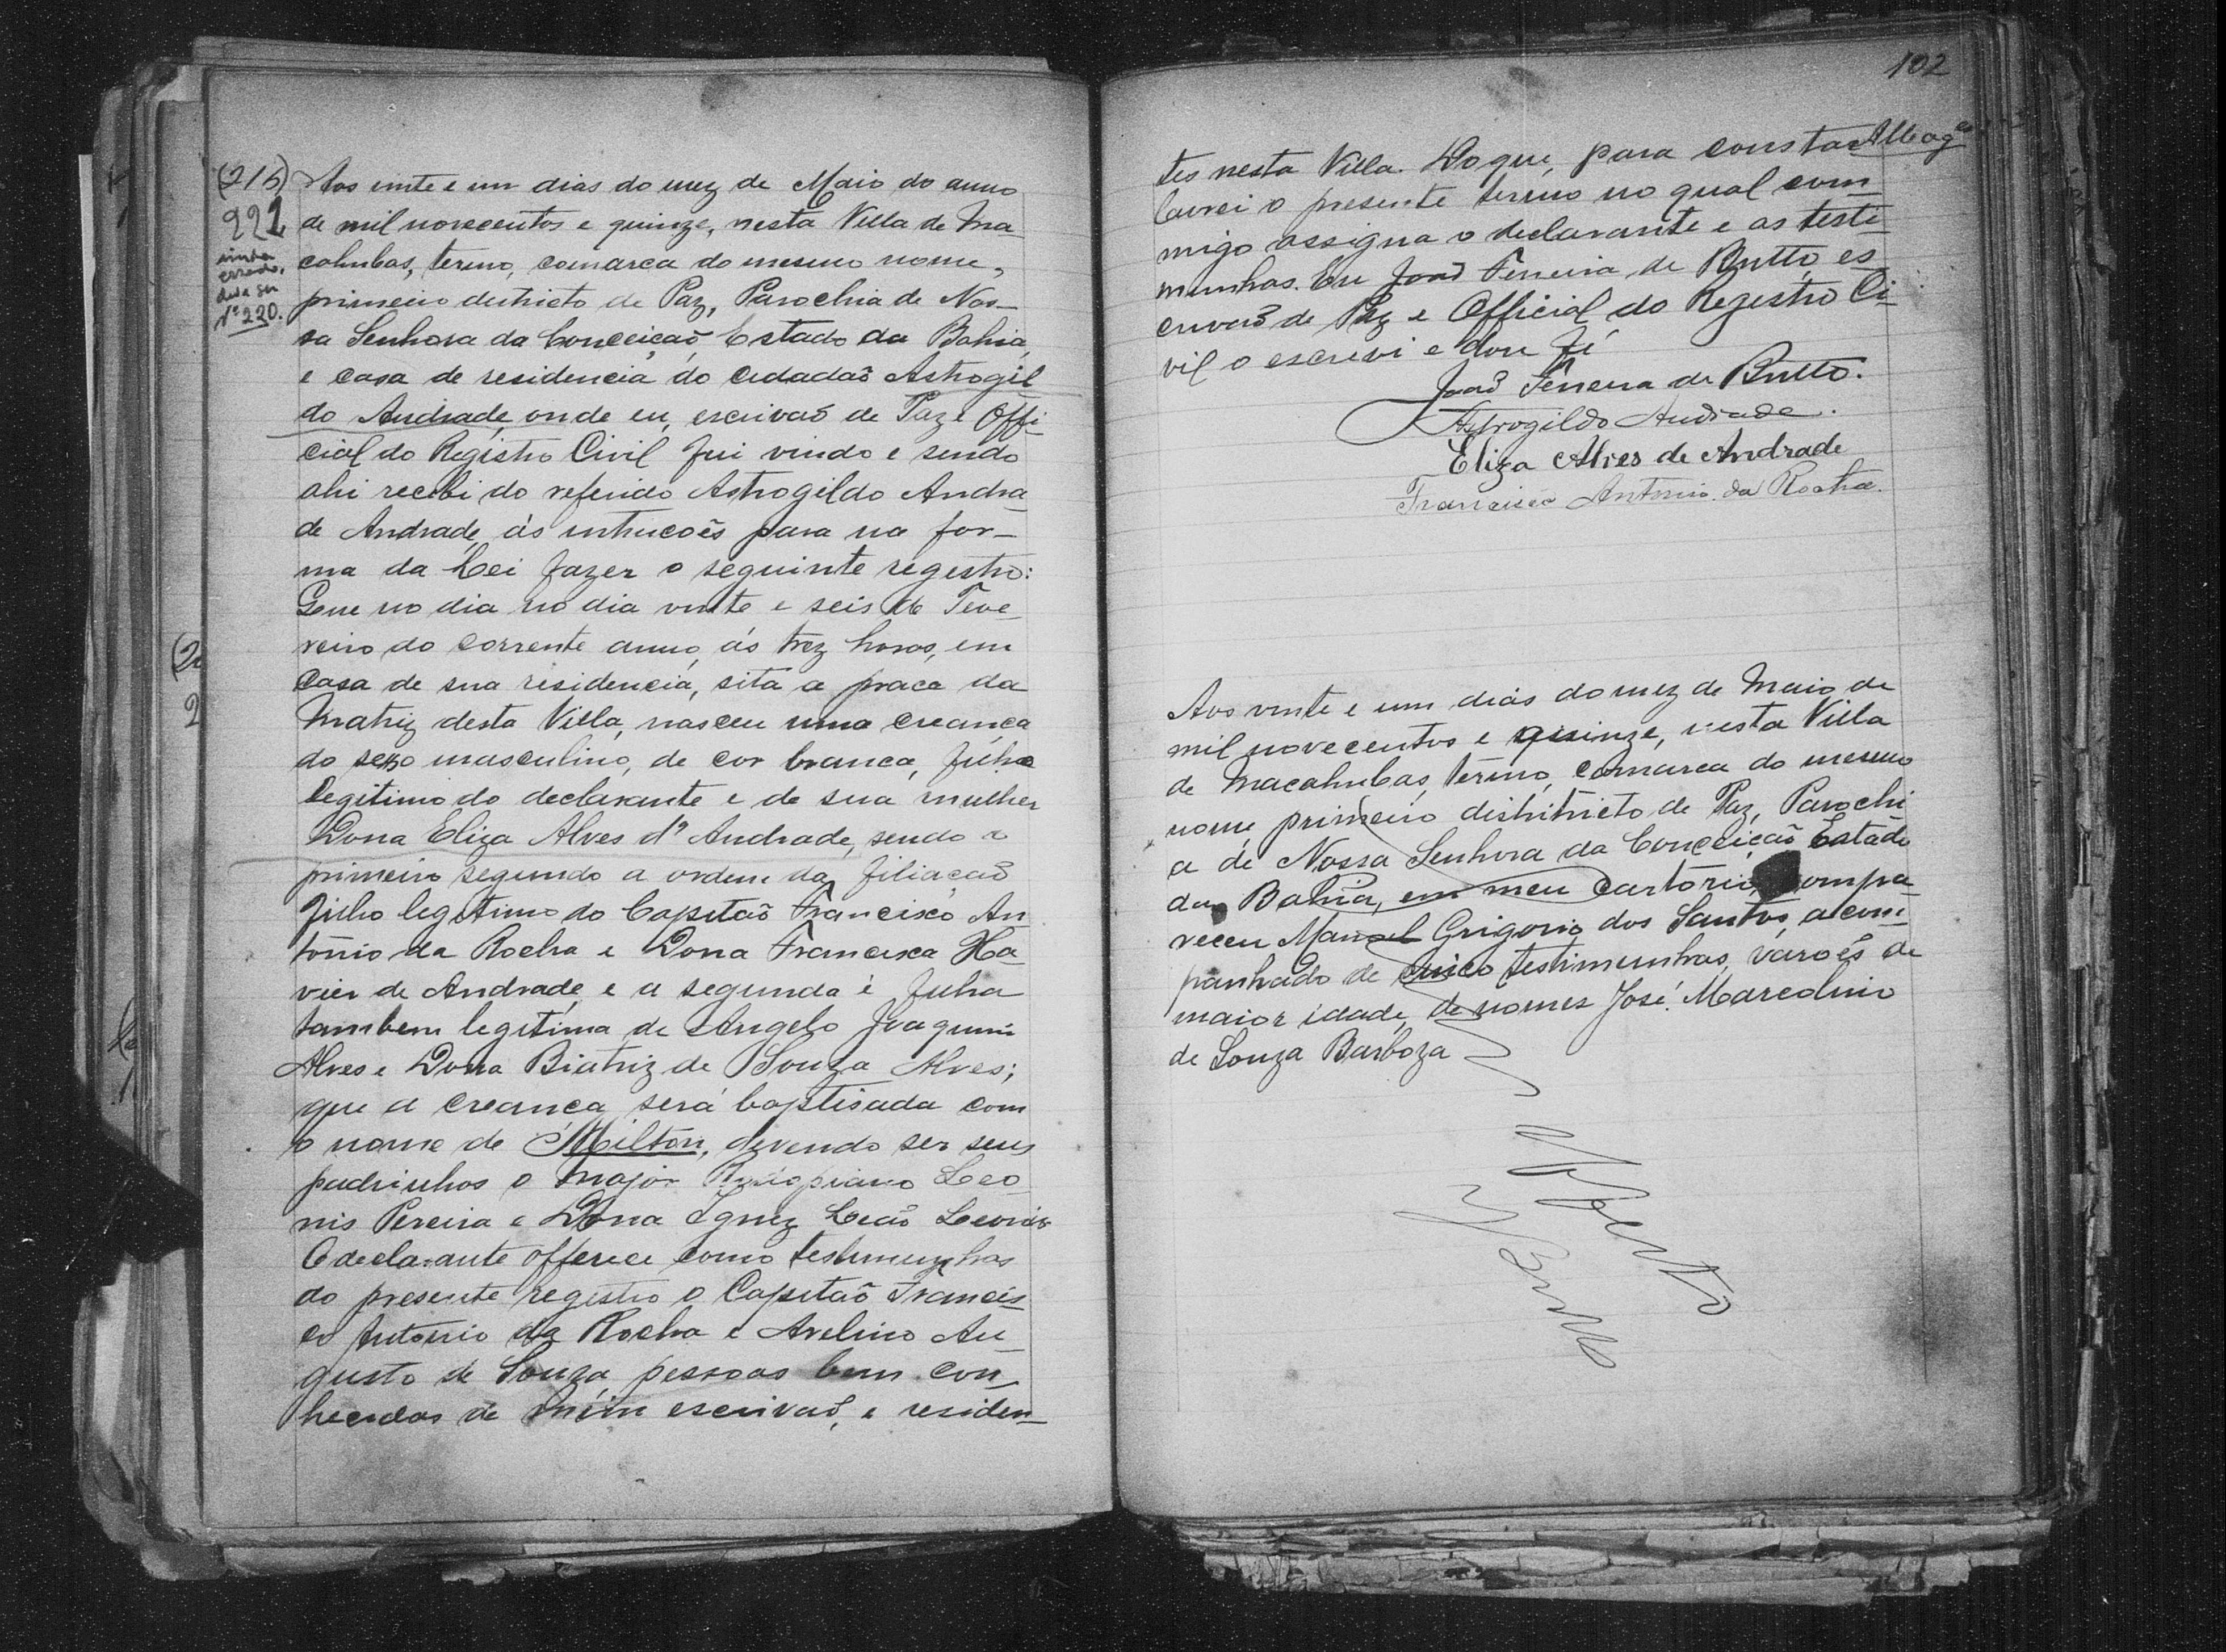 (215)
221
errado,
deve ser
Nº 220.
Aos vinte e um dias do mez de Maio do anno
de mil novecentos e quinze, nesta Villa de Ma-
cahubas, termo, comarca do mesmo nome,
primeiro destricto de Paz, Parochia de Nos-
sa Senhora da Conceição Estado da Bahia,
e casa de residencia do cidadaõ Astrogil
do Andrade, onde eu, escrivaõ de Paz e Offi-
cial do Registro Civil fui vindo e sendo
ahi recebi do referido Astrogildo Andra
de Andrade, ás intrucoẽs para na for-
ma da Lei fazer o seguinte registro:
Que no dia no dia vinte e seis de Feve
reiro do corrente anno, ás trez horas, em
casa de sua residencia, sita a praca da
Matriz desta Villa, nasceu uma creança
do sexo masculino, de cor branca, filho
legitimo do declarante e de sua mulher
Dona Eliza Alves d'Andrade, sendo o
primeiro segundo a ordem da filiaçaõ
filho legitimo do Capitaõ Francisco An
tonio da Rocha e Dona Francisca Xa
vier de Andrade, e a segunda é filha
tambem legitima de Angelo Joaquim
Alves e Dona Biatriz de Souza Alves;
que a creança será baptisada com
o nome de Milton, devendo ser seus
padrinhos o Major Leo
nis Pereira e Dona Ignez Leaõ Leonis
O declarante offerece como testimunhas
do presente registro o Capitaõ Francis-
co Antonio da Rocha e Avelino Au-
gusto de Souza, pessoas bem con
hecidas de mim escrivaõ, e residen-
102
tes nesta Villa. Do que, para constar
lavrei o presente termo no qual com
migo assigna o declarante e as teste
munhas. Eu Joaõ Ferreira de Britto, es
crivaõ de Paz e Official do Registro Ci-
vil o escrevi e dou fé
Joaõ Ferreira de Britto.
Astrogildo Andrade.
Eliza Alves de Andrade
Francisco Antonio da Rocha.
Aos vinte e um dias do mez de Maio de
mil novecentos e quinze, nesta Villa
de Macahubas, termo, comarca do mesmo
nome, primeiro distritricto de Paz, Parochi
a de Nossa Senhora da Conceição Estado
da Bahia, em meu Cartorio, compa
receu Manoel Grigorio dos Santos, acom-
panhado de cinco testimunhas, varoẽs de
maior idade, de nomes José Marcolino
de Souza Barboza